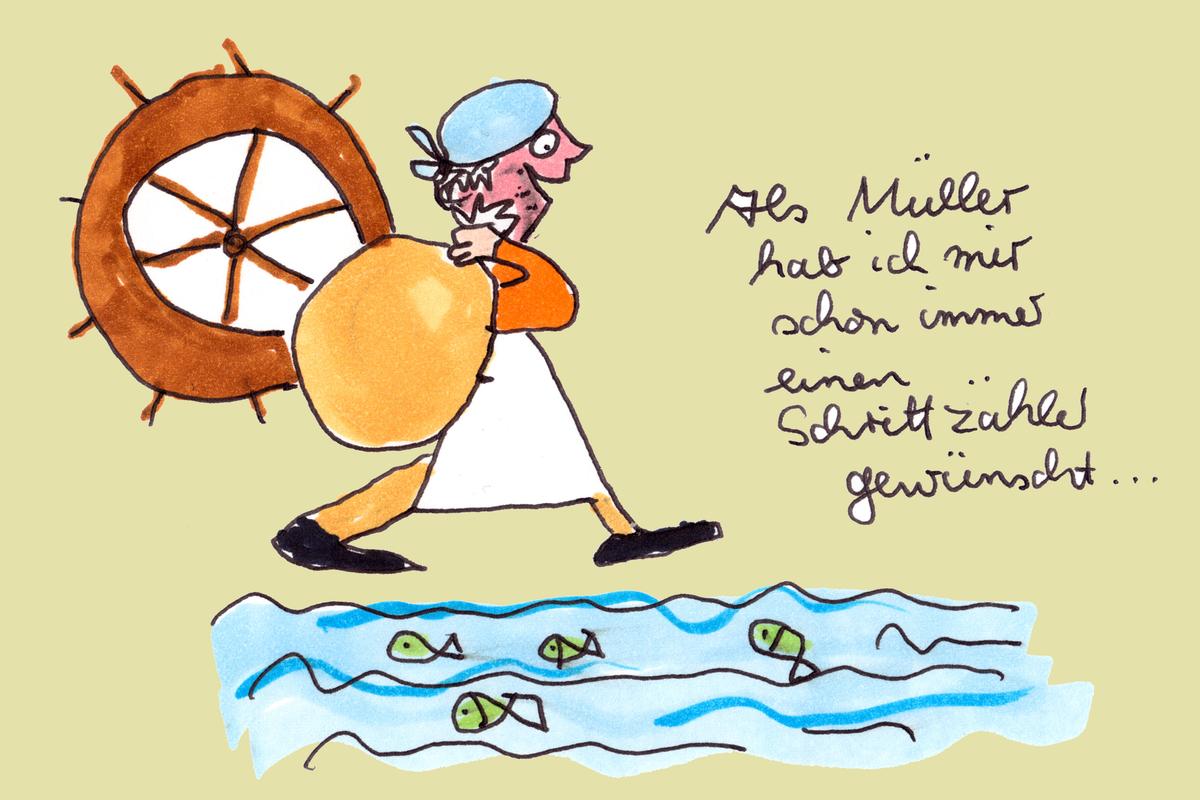 Als Müller
hab ich mir
schon immer
einen
Schrittzähler
gewünscht...